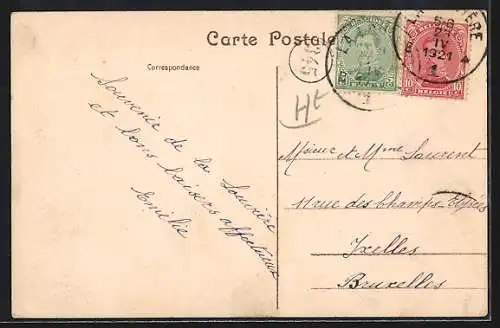 Carte Postale
Correspondance
345
Ht
LA LOUVIÈRE
27
IV
1921
BELGIQUE
10 10
Souvenir de la Louvière
et bons baisers affectueux
Emilie
Mr et Mme Laurent
11 rue des Champs-Elysées
Ixelles
Bruxelles